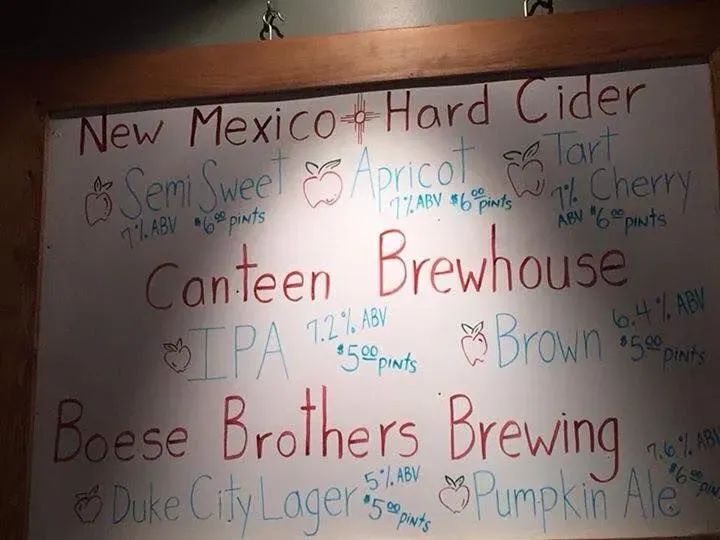 New Mexico Hard Cider
Semi Sweet 7% ABV $6.00 pints
Apricot 7% ABV $6.00 pints
Tart Cherry 7% ABV $6.00 pints
Canteen Brewhouse
IPA 7.2% ABV $5.00 pints
Brown 6.4% ABV $5.00 pints
Boese Brothers Brewing
Duke City Lager 5% ABV $5.00 pints
Pumpkin Ale 7.6% ABV $6